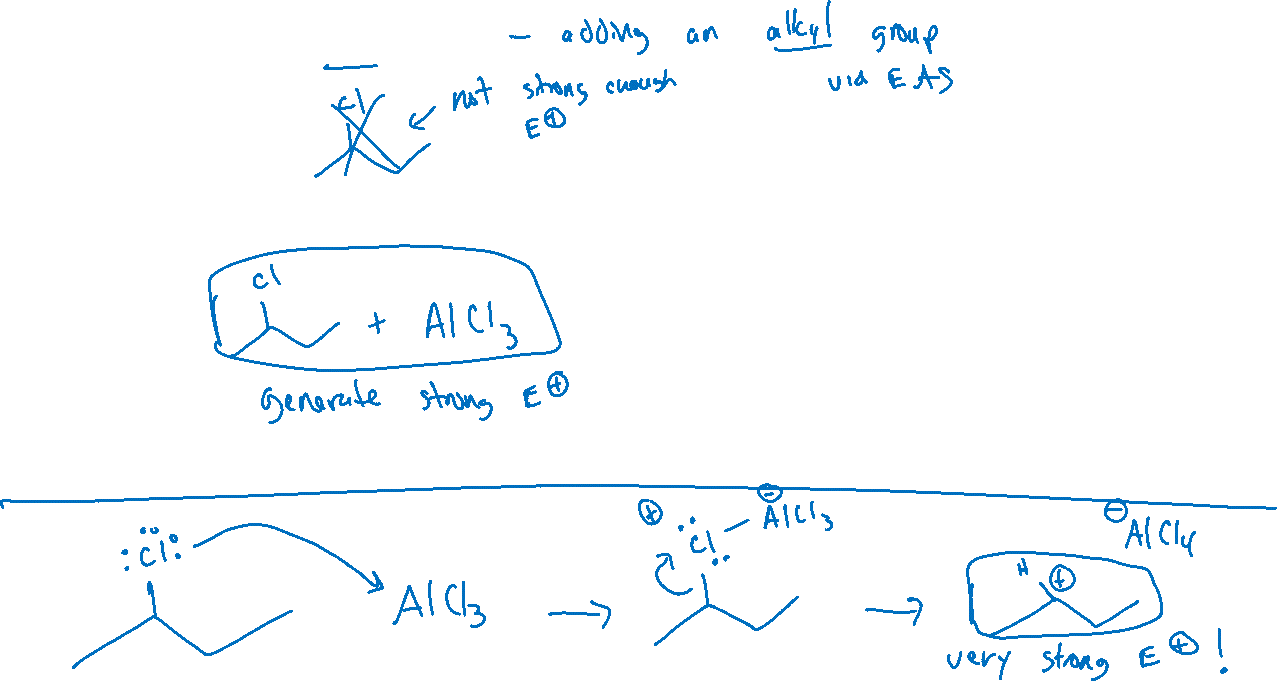 - adding an alkyl group
via EAS
Cl
not strong enough
E⊕
Cl
+ AlCl3
generate strong E⊕
:Cl:
AlCl3
⊕
Cl
⊖
AlCl3
⊖
AlCl4
H ⊕
very strong E⊕!